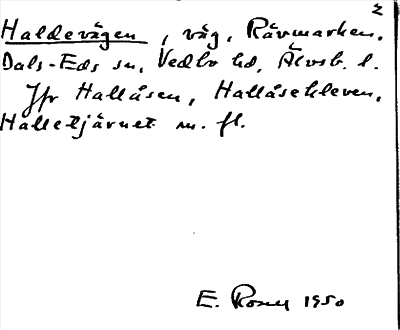 2
Haldevägen, väg, Rävmarken,
Dals-Eds sn, Vedbo hd, Älvsb. l.
Jfr Hallåsen, Hallåsekleven,
Halletjärnet m. fl.
E. 1950